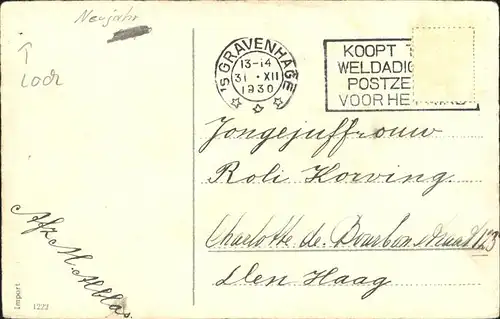 Neujahr
'S GRAVENHAGE
13-14
31 · XII
1930
KOOPT
WELDADIG
POSTZE
VOOR HE
Jongejuffrouw
Roli Korving
Charlotte de Bourbon straat 123
Den Haag
Afz
Import
1222